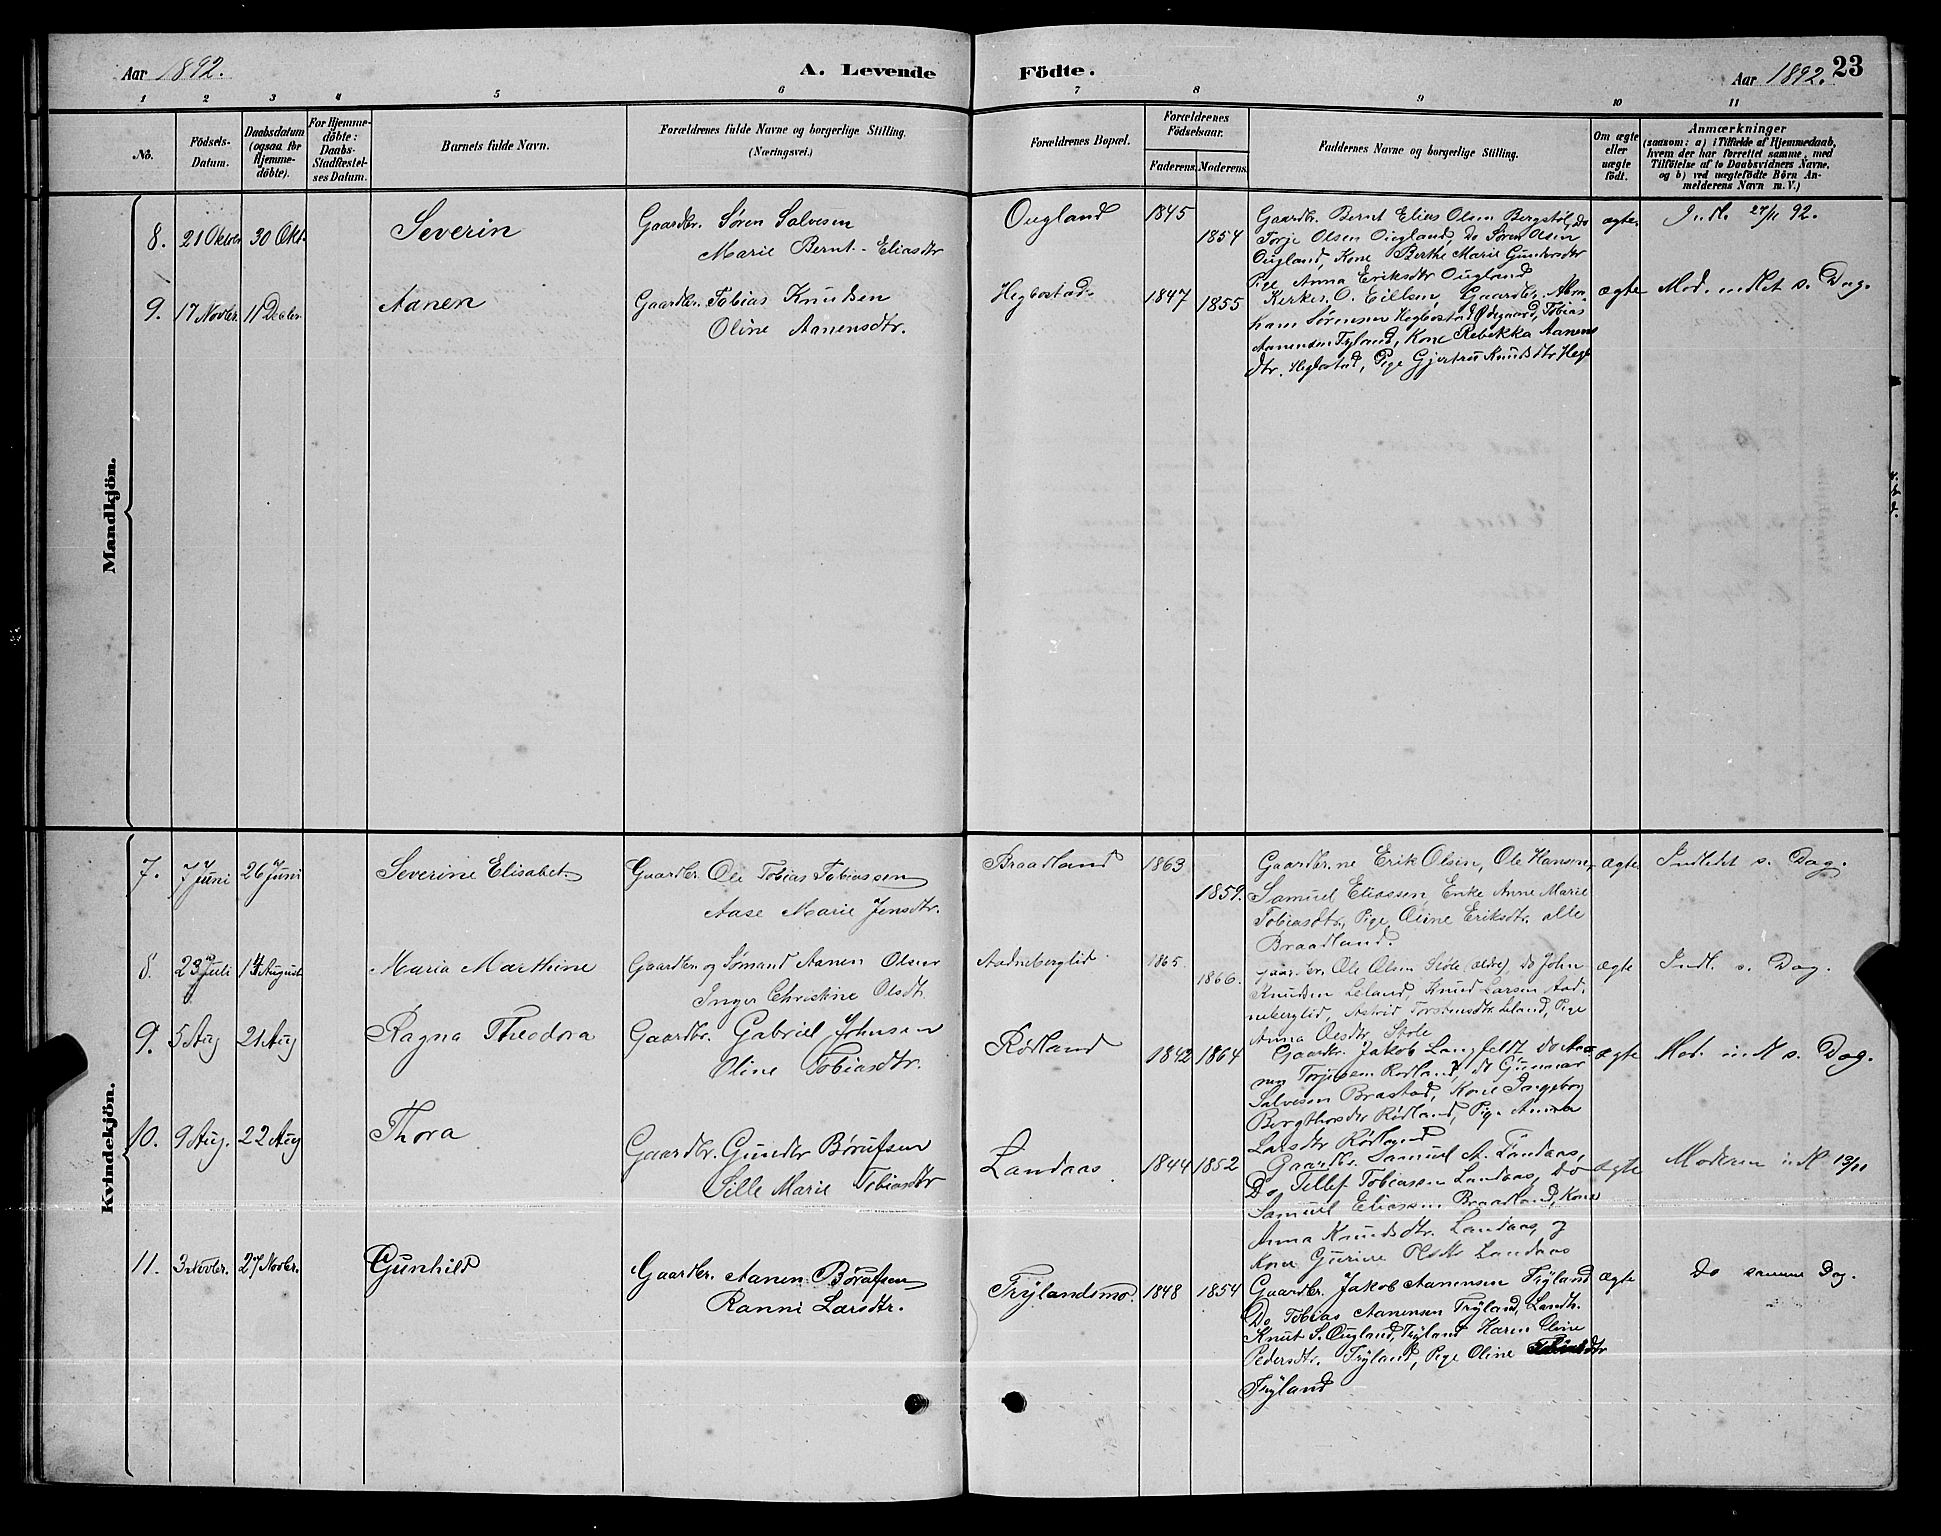 Aar 1892.
A. Levende Födte.
Aar 1892.
23
1 2 3 4 5 6 7 8 9 10 11
No.
Födsels-
Datum.
Daabsdatum
(ogsaa for
Hjemme-
döbte).
For Hjemme-
döbte:
Daabs-
Stadfæstel-
ses Datum.
Barnets fulde Navn.
Forældrenes fulde Navne og borgerlige Stilling.
(Næringsvei.)
Forældrenes Bopæl.
Forældrenes
Födselsaar.
Faderens. Moderens.
Faddernes Navne og borgerlige Stilling.
Om ægte
eller
uægte
födt.
Anmærkninger
(saasom: a) i Tilfælde af Hjemmedaab,
hvem der har forrettet samme, med
Tilföielse af to Daabsvidners Navne,
og b) ved uægtefödte Börn An-
melderens Navn m. V.)
Mandkjön.
8. 21 Oktober 30 Okt. Severin
Gaardbr. Søren Salvesen
Marie Bernt-Eliasdtr
Ougland 1845 1854
Gaardbr. Bernt Elias Olsen Bergstøl, Do
Torje Olsen Ougland, Do Søren Olsen
Ougland, Kone Berthe Marie Gundersdtr
Pige Anna Eriksdtr Ougland
ægte Indl. 27/11 92.
9. 17 Novbr. 11 Decbr. Aanen
Gaardbr. Tobias Knudsen
Oline Aanensdtr.
Hegbostad 1847 1855
Kirkes. O. Eilsen, Gaardbr. Abra-
ham Sørensen Hegbostad Ødegaard, Tobias
Aanensen Tyland, Kone Rebekka Aanens
dtr. Hegbostad, Pige Gjertru Knudsdtr Hegb
ægte Mod. indlet s. Dag.
Kvindekjön.
7. 7 Juni 26 Juni Severine Elisabet
Gaardbr. Ole Tobias Tobiassen
Aase Marie Jensdtr.
Braadland 1863 1859.
Gaardbr.ne Erik Olsen, Ole Hansen,
Samuel Eliassen, Enke Anne Marie
Tobiasdtr., Pige Oline Eriksdtr. alle
Braadland.
ægte Indledt s. Dag.
8. 23 Juli 14 August Maria Marthine
Gaardbr. og Sømand Aanen Olsen
Inger Christine Olsdtr.
Aadneberglid 1865 1866.
Gaardbr. Ole Olsen Støle (ældre), Do John
Knudsen Leland, Knud Larsen Aad-
neberglid, Astrid Torstensdtr Leland, Pige
Anna Olsdtr. Støle
ægte Indl. s. Dag.
9. 5 Aug 21 Aug Ragna Theodora
Gaardbr. Gabriel Johnsen
Oline Tobiasdtr.
Rødland 1842 1864
Gaardbr. Jakob Langfeldt, do Aa-
nen Torjusen Rødland, do Gunnar
Salvesen Brastad, Kone Ingeborg
Bergthorsdtr Rødland, Pige Anna
Larsdtr Rødland
ægte Mod. indl s. Dag.
10. 9 Aug. 22 Aug Thora
Gaardbr. Gunder Børufsen
Sille Marie Tobiasdtr
Landaas 1844 1852
Gaardbr. Samuel A. Landaas,
Do Tellef Tobiassen Landaas, Do
Samuel Eliassen Braadland, Kone
Anna Knudsdtr. Landaas, og
Kone Gurine Olsdtr Landaas
ægte Moderen indl 13/11
11. 3 Novbr. 27 Novbr. Gunhild
Gaardbr. Aanen Børufsen
Ranni Larsdtr.
Trylandsmo. 1848 1854
Gaardbr. Jakob Aanensen Tryland
Do Tobias Aanensen Tryland, Landh.
Knut S. Ougland, Tryland Karen Oline
Pedersdtr. Tryland, Pige Oline
Tryland
ægte Do samme Dag.